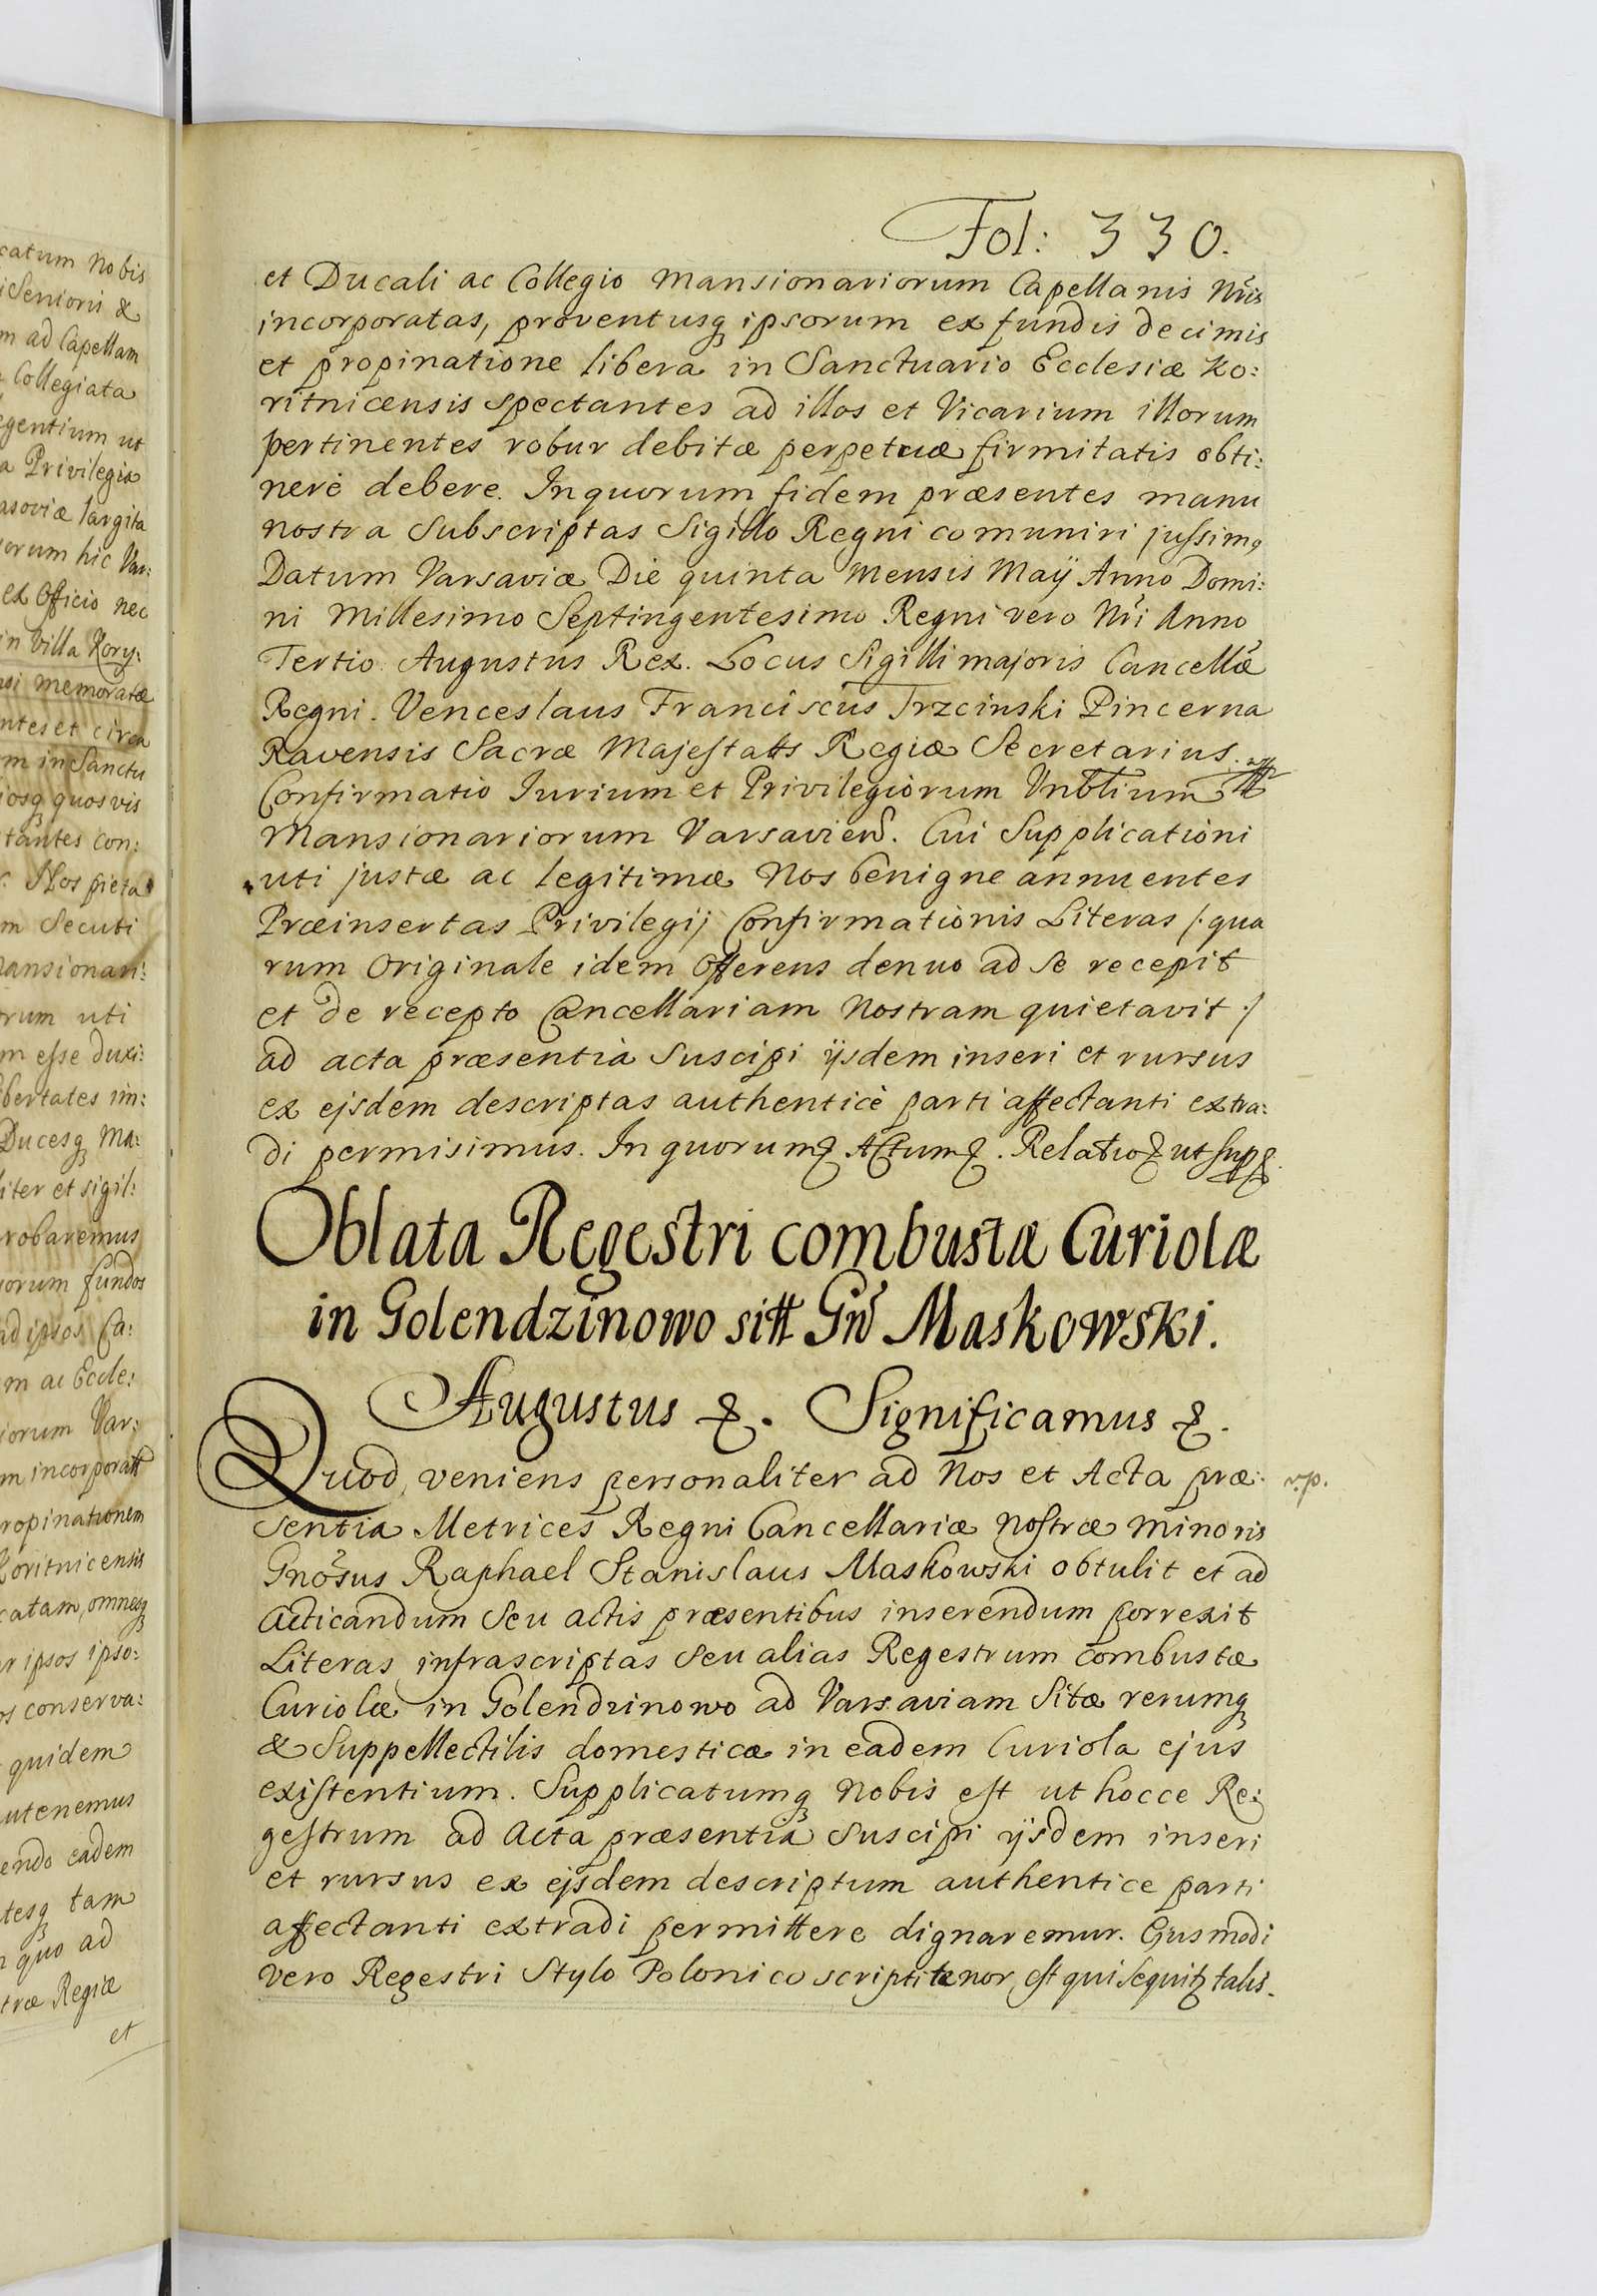 catum nobis
Seniorii &
m ad Capellam
Collegiata
egentium ut
a Privilegia
asoviæ largita
orum hic Var:
ex Officio nec
in Villa Kory:
si memoratæ
ntes et circa
m in Sanctu
iosq quosvis
tantes con:
Nos pieta
m Secuti
ansionari:
rum uti
m esse duxi:
bertates im:
Ducesq Ma:
liter et sigil:
robaremus
orum fundos
ad ipsos Ca:
m ac Eccle:
iorum Var:
m incorporatt
ropinationem
Koritnicensis
catam, omnesq
r ipsos ipso:
os conserva:
quidem
utenemus
endo eadem
tesq tam
quo ad
træ Regiæ
et
Fol: 330.
et Ducali ac Collegio Mansionariorum Capellanis Nris
incorporatas, proventusq ipsorum ex fundis decimis
et propinatione libera in Sanctuario Ecclesiæ Ko:
ritnicensis spectantes ad illos et Vicarium illorum
pertinentes robur debitæ perpetuæ firmitatis obti:
nere debere. In quorum fidem præsentes manu
nostra Subscriptas Sigillo Regni comuniri jussimq
Datum Varsaviæ Die quinta Mensis Maij Anno Domi:
ni Millesimo Septingentesimo Regni vero Nri Anno
Tertio. Augustus Rex. Locus Sigilli majoris Cancellæ
Regni. Venceslaus Franciscus Trzcinski Pincerna
Ravensis Sacræ Majestatts Regiæ Secretarius.
Confirmatio Iurium et Privilegiorum Vnblium
Mansionariorum Varsavien. Cui Supplicationi
uti justæ ac legitimæ Nos benigne annuentes
Præinsertas Privilegij Confirmationis Literas /: qua
rum Originale idem Offerens denuo ad se recepit
et de recepto Cancellariam Nostram quietavit :/
ad acta præsentia Suscipi ijsdem inseri et rursus
ex ejsdem descriptas authenticè parti affectanti extra:
di permisimus. In quorum & Actum &. Relatio & ut sup &.
Oblata Regestri combustæ Curiolæ
in Golendzinowo sitt Gn Maskowski.
Augustus &. Significamus &.
Quod veniens personaliter ad Nos et Acta præ:
r.p.
sentia Metrices Regni Cancellariæ Nostræ Minoris
Gnosus Raphael Stanislaus Maskowski obtulit et ad
acticandum seu actis præsentibus inserendum porrexit
Literas infrascriptas seu alias Regestrum combustæ
Curiolæ in Golendzinowo ad Varsaviam Sitæ rerumq
& Suppellectilis domesticæ in eadem Curiola ejus
existentium. Supplicatumq Nobis est ut hocce Re:
gestrum ad Acta præsentia Suscipi ijsdem inseri
et rursus ex ejsdem descriptum authentice parti
affectanti extradi permittere dignaremur. Ejusmodi
vero Regestri Stylo Polonico scripti tenor est qui sequitz talis.